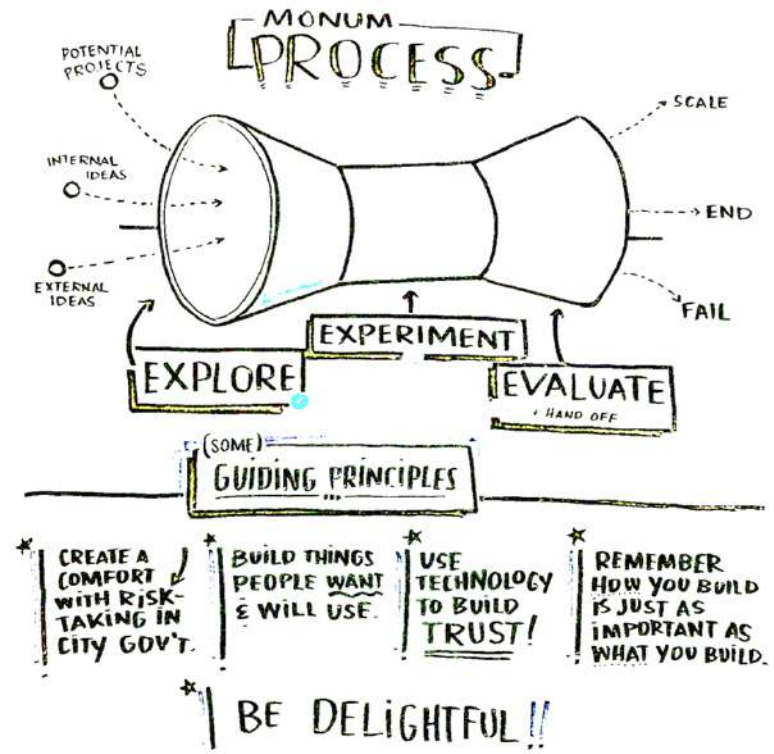 MONUM
PROCESS
POTENTIAL
PROJECTS
INTERNAL
IDEAS
EXTERNAL
IDEAS
SCALE
END
FAIL
EXPLORE
EXPERIMENT
EVALUATE
+ HAND OFF
(SOME)
GUIDING PRINCIPLES
...
CREATE A
COMFORT
WITH RISK-
TAKING IN
CITY GOV'T.
BUILD THINGS
PEOPLE WANT
& WILL USE.
USE
TECHNOLOGY
TO BUILD
TRUST!
REMEMBER
HOW YOU BUILD
IS JUST AS
IMPORTANT AS
WHAT YOU BUILD.
BE DELIGHTFUL!!